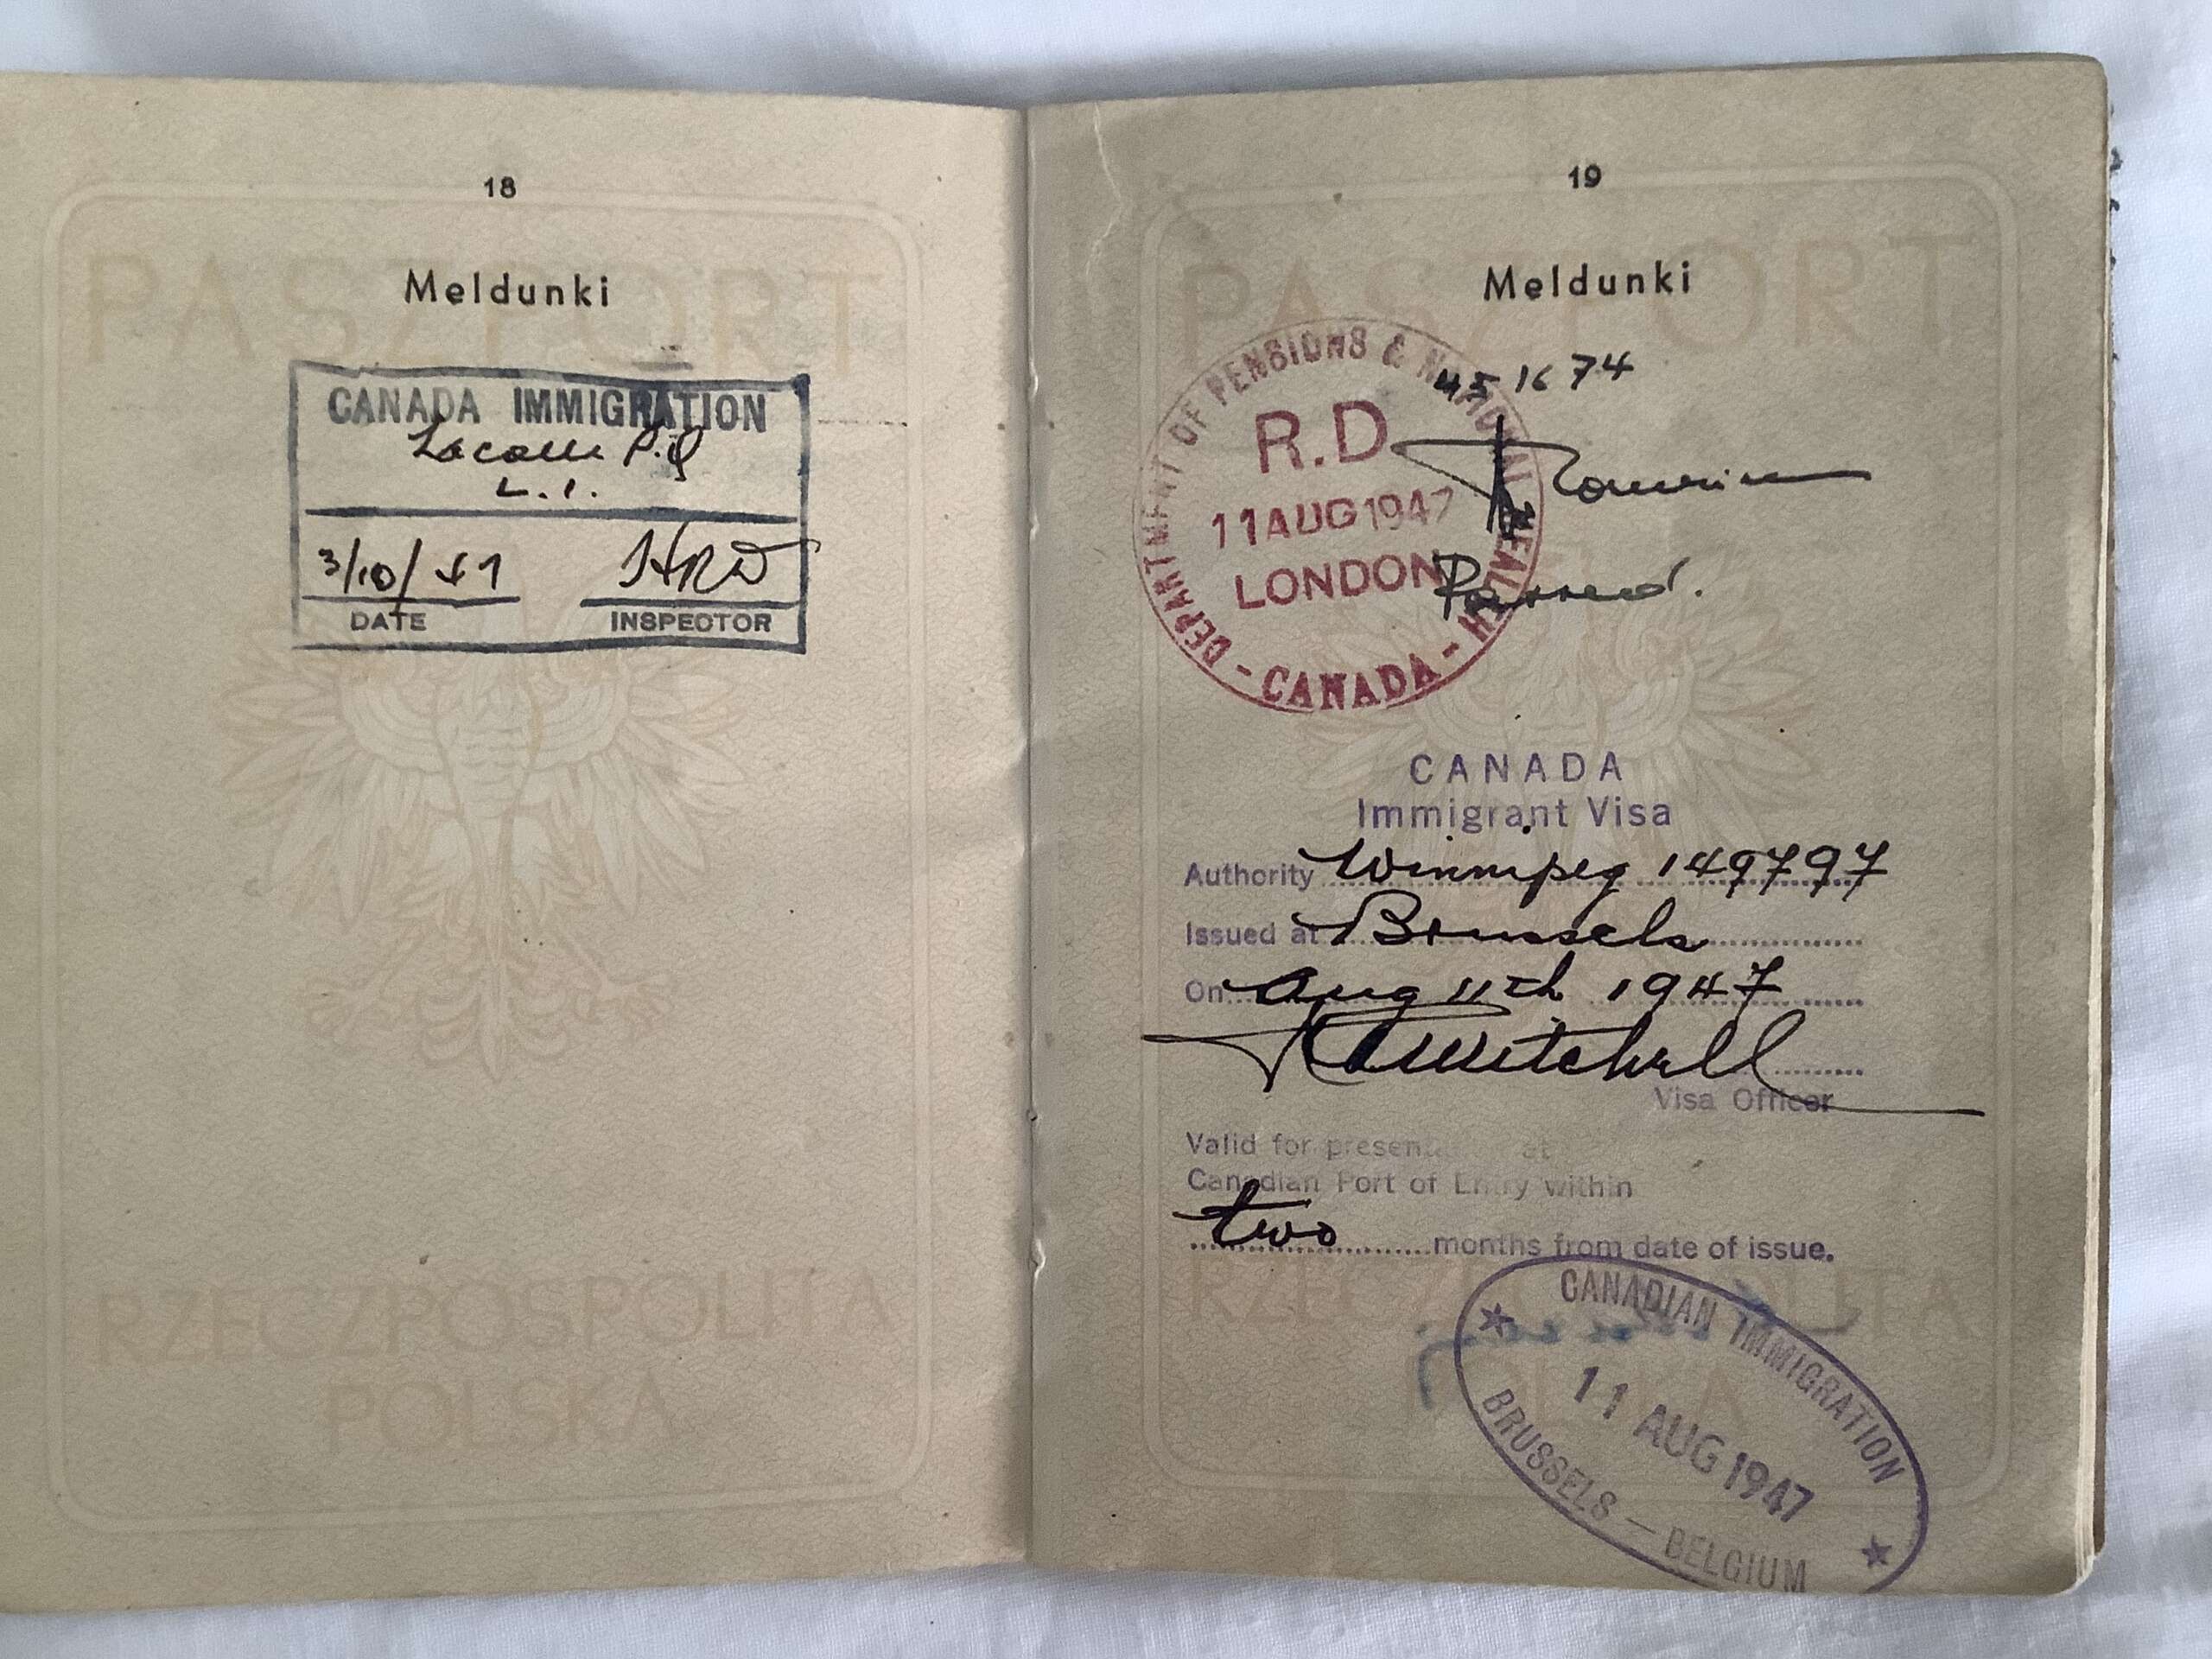 18
PASZPORT
Meldunki
CANADA IMMIGRATION
Lacolle P.Q
L.I.
3/10/47
HRW
DATE
INSPECTOR
RZECZPOSPOLITA
POLSKA
19
PASZPORT
Meldunki
DEPARTMENT OF PENSIONS & NATIONAL HEALTH
- CANADA -
R.D
11 AUG 1947
LONDON
1674
Passed.
CANADA
Immigrant Visa
Authority Winnipeg 149797
Issued at Brussels
On Aug 11th 1947
Mitchell
Visa Officer
Valid for presentation at
Canadian Port of Entry within
two months from date of issue.
RZECZPOSPOLITA
POLSKA
CANADIAN IMMIGRATION
11 AUG 1947
BRUSSELS — BELGIUM